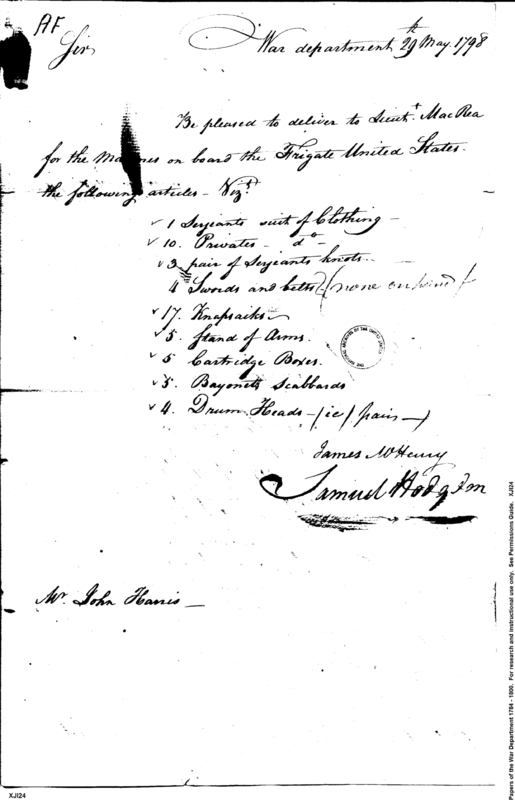 AF
War department 29th May. 1798
Sir
Be pleased to deliver to Lieut. MacRea
for the Marines on board the Frigate United States.
the following articles – Vizt
✓ 1 Serjeants suit of Clothing –
✓ 10. Privates – do –
✓ 3 pair of Serjeants knots. –
4 Swords and belts (none on hand)
✓ 17. Knapsacks
✓ 5. Stand of Arms.
✓ 5 Cartridge Boxes.
✓ 5. Bayonets Scabbards
✓ 4. Drum Heads – (ie) pairs –)
James McHenry
Samuel Hodgdon
Mr. John Harris –
Papers of the War Department 1784 - 1800. For research and instructional use only. See Permissions Guide. XJI24
XJI24